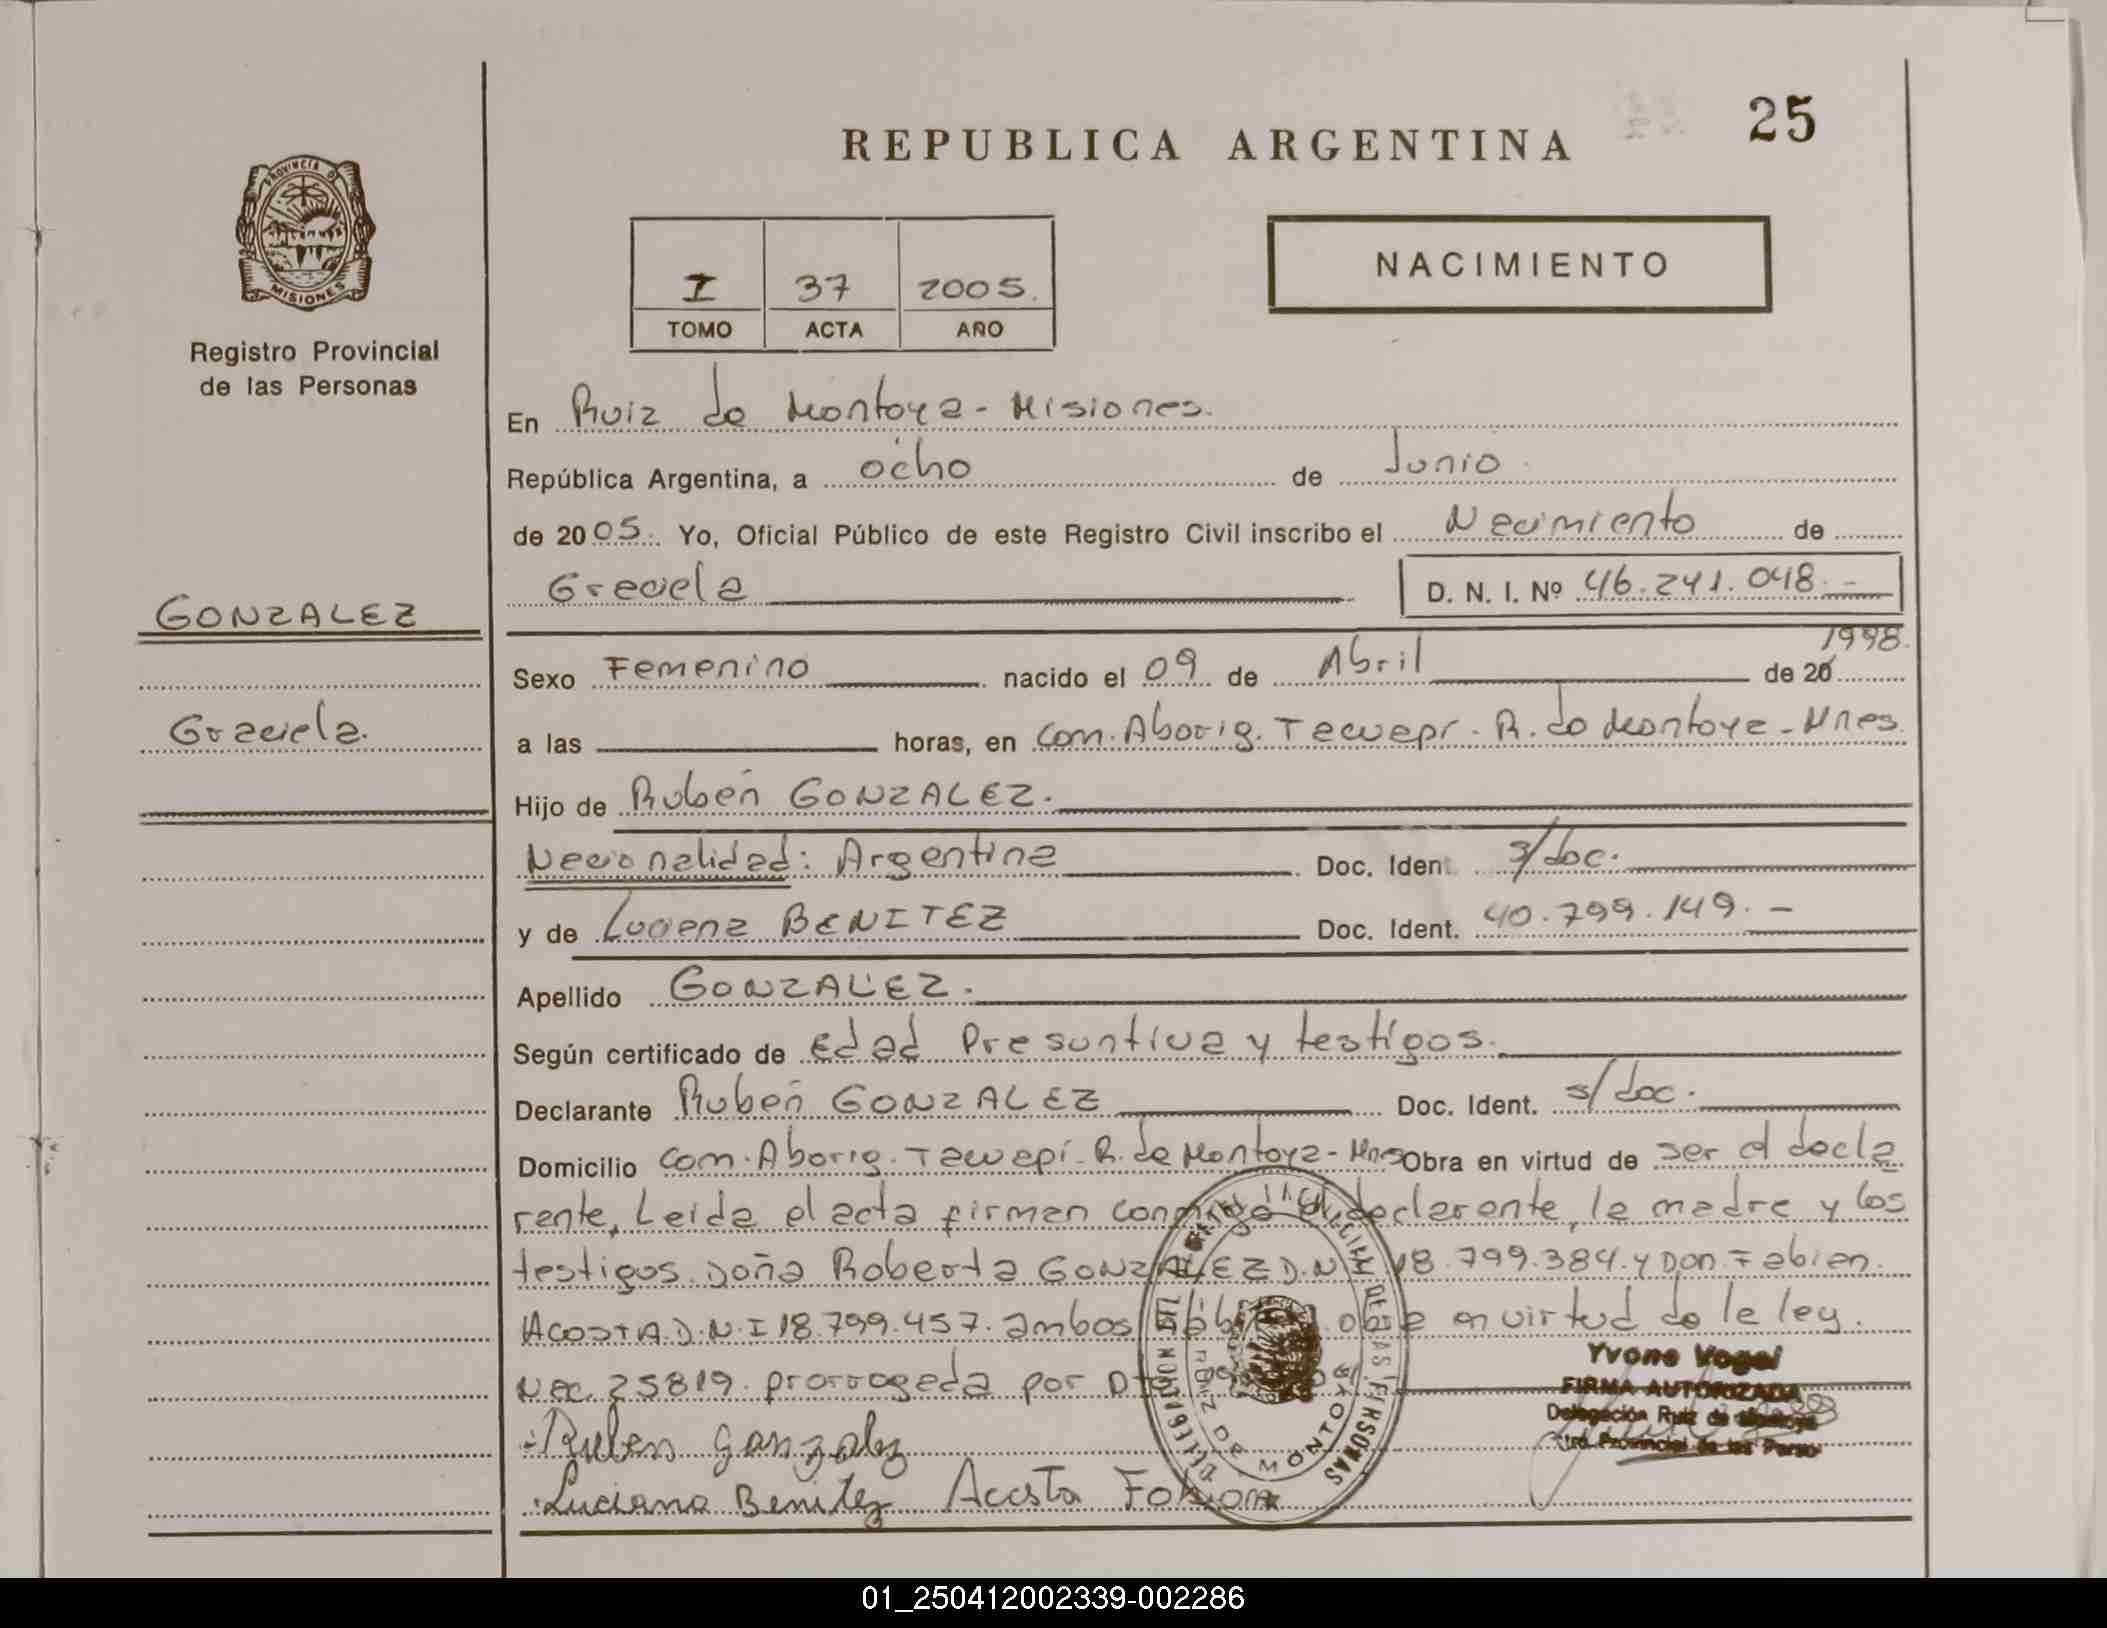 REPUBLICA ARGENTINA
25
PROVINCIA D
MISIONES
Registro Provincial
de las Personas
I 37 2005.
TOMO ACTA AÑO
NACIMIENTO
En Ruiz de Montoya - Misiones.
República Argentina, a ocho de Junio.
de 2005. Yo, Oficial Público de este Registro Civil inscribo el Nacimiento de
Graciela D. N. I. Nº 46.241.048.-
GONZALEZ
Graciela.
1998.
Sexo Femenino nacido el 09 de Abril de 20
a las horas, en Com. Aborig. Tacuapí - R. de Montoya - Mnes.
Hijo de Rubén GONZALEZ.
Nacionalidad: Argentina Doc. Ident. s/doc.
y de Luciana BENITEZ Doc. Ident. 40.799.149.-
Apellido GONZALEZ.
Según certificado de Edad Presuntiva y testigos.
Declarante Rubén GONZALEZ Doc. Ident. s/doc.
Domicilio Com. Aborig. Tacuapí - R. de Montoya - Mnes Obra en virtud de ser el decla
rante, Leida el acta firman conmigo el declarante, la madre y los
testigos Doña Roberta GONZALEZ D.N.I 18.799.384 y Don Fabian
ACOSTA D.N.I 18.799.457. ambos en virtud de la ley
Nac. 25819. prorrogada por
Ruben gonzalez
Luciana Benitez Acosta Fabian
RUIZ DE MONTOYA
Yvone Vogel
FIRMA AUTORIZADA
Delegación Ruiz de Montoya
Provincial de las Perso
01_250412002339-002286